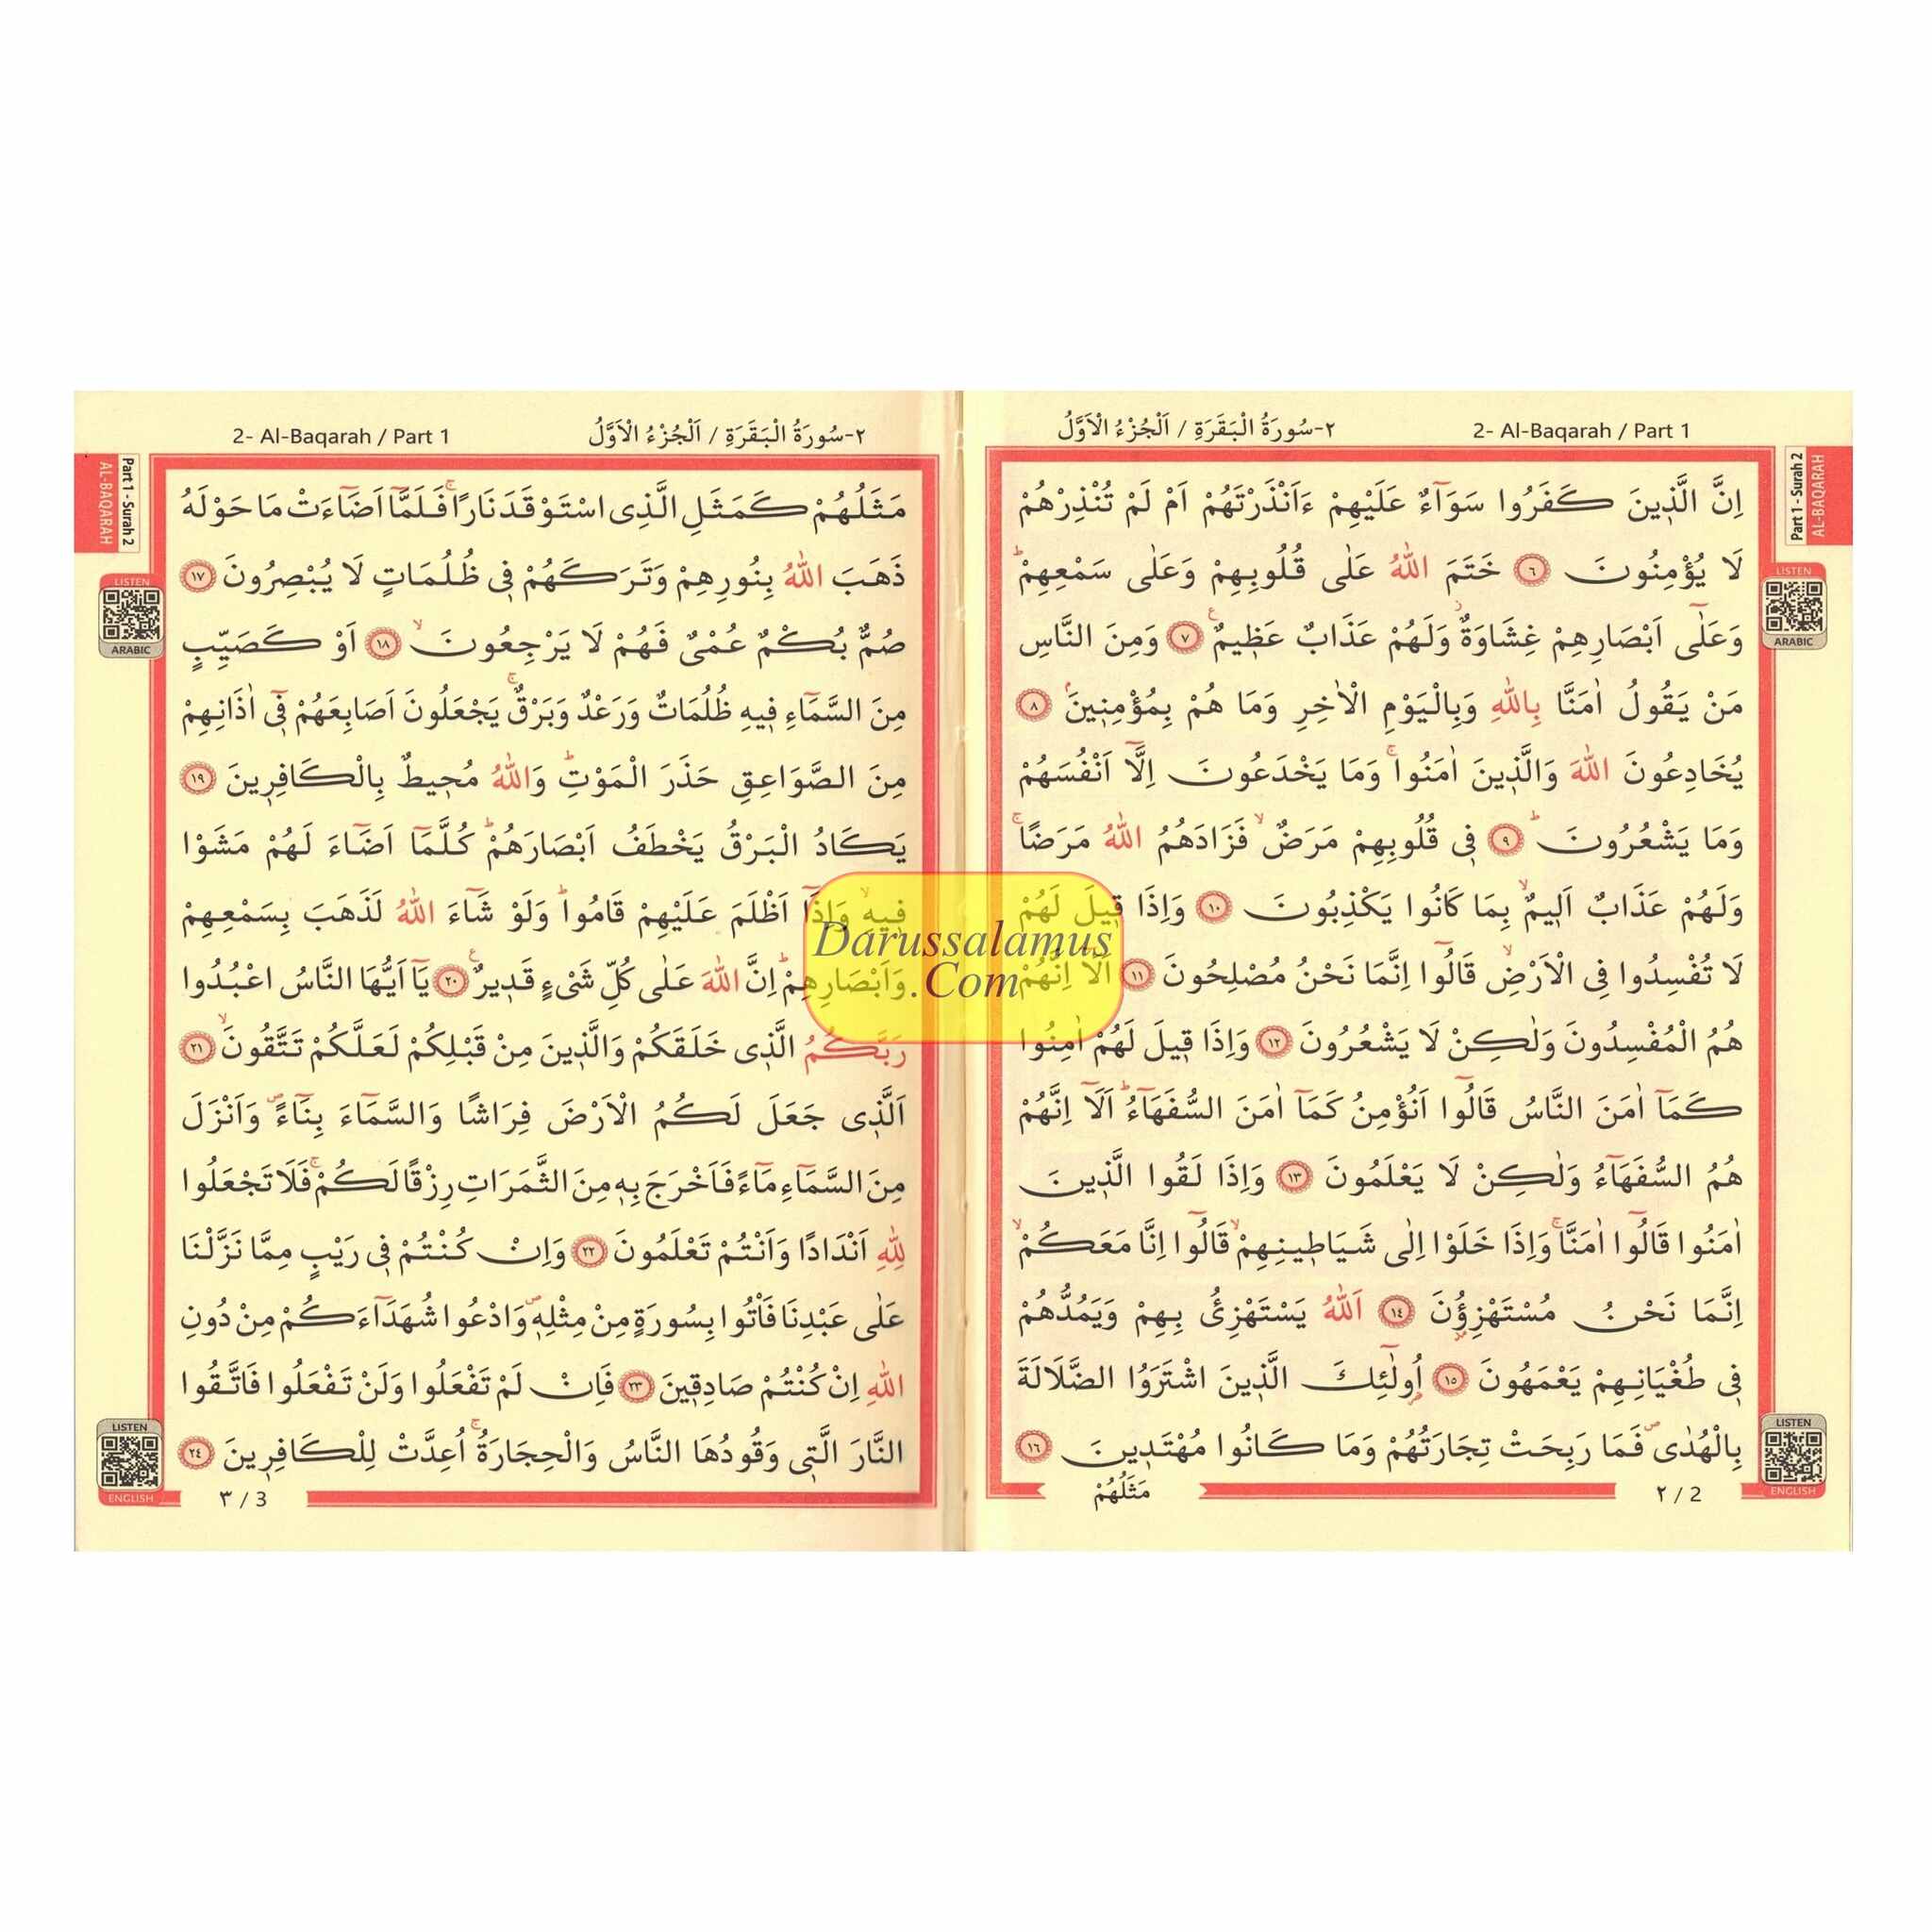 2- Al-Baqarah / Part 1
٢-سُورَةُ الْبَقَرَةِ / اَلْجُزْءُ الْاَوَّلُ
Part 1 - Surah 2
AL-BAQARAH
LISTEN
ARABIC
اِنَّ الَّذ۪ينَ كَفَرُوا سَوَٓاءٌ عَلَيْهِمْ ءَاَنْذَرْتَهُمْ اَمْ لَمْ تُنْذِرْهُمْ
لَا يُؤْمِنُونَ ﴿٦﴾ خَتَمَ اللّٰهُ عَلٰى قُلُوبِهِمْ وَعَلٰى سَمْعِهِمْۜ
وَعَلٰٓى اَبْصَارِهِمْ غِشَاوَةٌۘ وَلَهُمْ عَذَابٌ عَظ۪يمٌ۟ ﴿٧﴾ وَمِنَ النَّاسِ
مَنْ يَقُولُ اٰمَنَّا بِاللّٰهِ وَبِالْيَوْمِ الْاٰخِرِ وَمَا هُمْ بِمُؤْمِن۪ينَۢ ﴿٨﴾
يُخَادِعُونَ اللّٰهَ وَالَّذ۪ينَ اٰمَنُواۚ وَمَا يَخْدَعُونَ اِلَّٓا اَنْفُسَهُمْ
وَمَا يَشْعُرُونَۜ ﴿٩﴾ ف۪ي قُلُوبِهِمْ مَرَضٌۙ فَزَادَهُمُ اللّٰهُ مَرَضًاۚ
وَلَهُمْ عَذَابٌ اَل۪يمٌۙ بِمَا كَانُوا يَكْذِبُونَ ﴿١٠﴾ وَاِذَا ق۪يلَ لَهُمْ
لَا تُفْسِدُوا فِي الْاَرْضِۙ قَالُٓوا اِنَّمَا نَحْنُ مُصْلِحُونَ ﴿١١﴾ اَلَٓا اِنَّهُمْ
هُمُ الْمُفْسِدُونَ وَلٰكِنْ لَا يَشْعُرُونَ ﴿١٢﴾ وَاِذَا ق۪يلَ لَهُمْ اٰمِنُوا
كَمَٓا اٰمَنَ النَّاسُ قَالُٓوا اَنُؤْمِنُ كَمَٓا اٰمَنَ السُّفَهَٓاءُۜ اَلَٓا اِنَّهُمْ
هُمُ السُّفَهَٓاءُ وَلٰكِنْ لَا يَعْلَمُونَ ﴿١٣﴾ وَاِذَا لَقُوا الَّذ۪ينَ
اٰمَنُوا قَالُٓوا اٰمَنَّاۚ وَاِذَا خَلَوْا اِلٰى شَيَاط۪ينِهِمْۙ قَالُٓوا اِنَّا مَعَكُمْۙ
اِنَّمَا نَحْنُ مُسْتَهْزِؤُ۫نَ ﴿١٤﴾ اَللّٰهُ يَسْتَهْزِئُ بِهِمْ وَيَمُدُّهُمْ
ف۪ي طُغْيَانِهِمْ يَعْمَهُونَ ﴿١٥﴾ اُو۬لٰٓئِكَ الَّذ۪ينَ اشْتَرَوُا الضَّلَالَةَ
بِالْهُدٰىۖ فَمَا رَبِحَتْ تِجَارَتُهُمْ وَمَا كَانُوا مُهْتَد۪ينَ ﴿١٦﴾
LISTEN
ENGLISH
٢ / 2
مَثَلُهُمْ
2- Al-Baqarah / Part 1
٢-سُورَةُ الْبَقَرَةِ / اَلْجُزْءُ الْاَوَّلُ
Part 1 - Surah 2
AL-BAQARAH
LISTEN
ARABIC
مَثَلُهُمْ كَمَثَلِ الَّذِي اسْتَوْقَدَ نَارًاۚ فَلَمَّٓا اَضَٓاءَتْ مَا حَوْلَهُ
ذَهَبَ اللّٰهُ بِنُورِهِمْ وَتَرَكَهُمْ ف۪ي ظُلُمَاتٍ لَا يُبْصِرُونَ ﴿١٧﴾
صُمٌّ بُكْمٌ عُمْيٌ فَهُمْ لَا يَرْجِعُونَۙ ﴿١٨﴾ اَوْ كَصَيِّبٍ
مِنَ السَّمَٓاءِ ف۪يهِ ظُلُمَاتٌ وَرَعْدٌ وَبَرْقٌۚ يَجْعَلُونَ اَصَابِعَهُمْ ف۪ٓي اٰذَانِهِمْ
مِنَ الصَّوَاعِقِ حَذَرَ الْمَوْتِۜ وَاللّٰهُ مُح۪يطٌ بِالْكَافِر۪ينَ ﴿١٩﴾
يَكَادُ الْبَرْقُ يَخْطَفُ اَبْصَارَهُمْۜ كُلَّمَٓا اَضَٓاءَ لَهُمْ مَشَوْا
ف۪يهِۙ وَاِذَٓا اَظْلَمَ عَلَيْهِمْ قَامُواۜ وَلَوْ شَٓاءَ اللّٰهُ لَذَهَبَ بِسَمْعِهِمْ
وَاَبْصَارِهِمْۜ اِنَّ اللّٰهَ عَلٰى كُلِّ شَيْءٍ قَد۪يرٌ۟ ﴿٢٠﴾ يَٓا اَيُّهَا النَّاسُ اعْبُدُوا
رَبَّكُمُ الَّذ۪ي خَلَقَكُمْ وَالَّذ۪ينَ مِنْ قَبْلِكُمْ لَعَلَّكُمْ تَتَّقُونَۙ ﴿٢١﴾
اَلَّذ۪ي جَعَلَ لَكُمُ الْاَرْضَ فِرَاشًا وَالسَّمَٓاءَ بِنَٓاءًۖ وَاَنْزَلَ
مِنَ السَّمَٓاءِ مَٓاءً فَاَخْرَجَ بِه۪ مِنَ الثَّمَرَاتِ رِزْقًا لَكُمْۚ فَلَا تَجْعَلُوا
لِلّٰهِ اَنْدَادًا وَاَنْتُمْ تَعْلَمُونَ ﴿٢٢﴾ وَاِنْ كُنْتُمْ ف۪ي رَيْبٍ مِمَّا نَزَّلْنَا
عَلٰى عَبْدِنَا فَأْتُوا بِسُورَةٍ مِنْ مِثْلِه۪ۖ وَادْعُوا شُهَدَٓاءَكُمْ مِنْ دُونِ
اللّٰهِ اِنْ كُنْتُمْ صَادِق۪ينَ ﴿٢٣﴾ فَاِنْ لَمْ تَفْعَلُوا وَلَنْ تَفْعَلُوا فَاتَّقُوا
النَّارَ الَّت۪ي وَقُودُهَا النَّاسُ وَالْحِجَارَةُۚ اُعِدَّتْ لِلْكَافِر۪ينَ ﴿٢٤﴾
LISTEN
ENGLISH
٣ / 3
Darussalamus
.Com